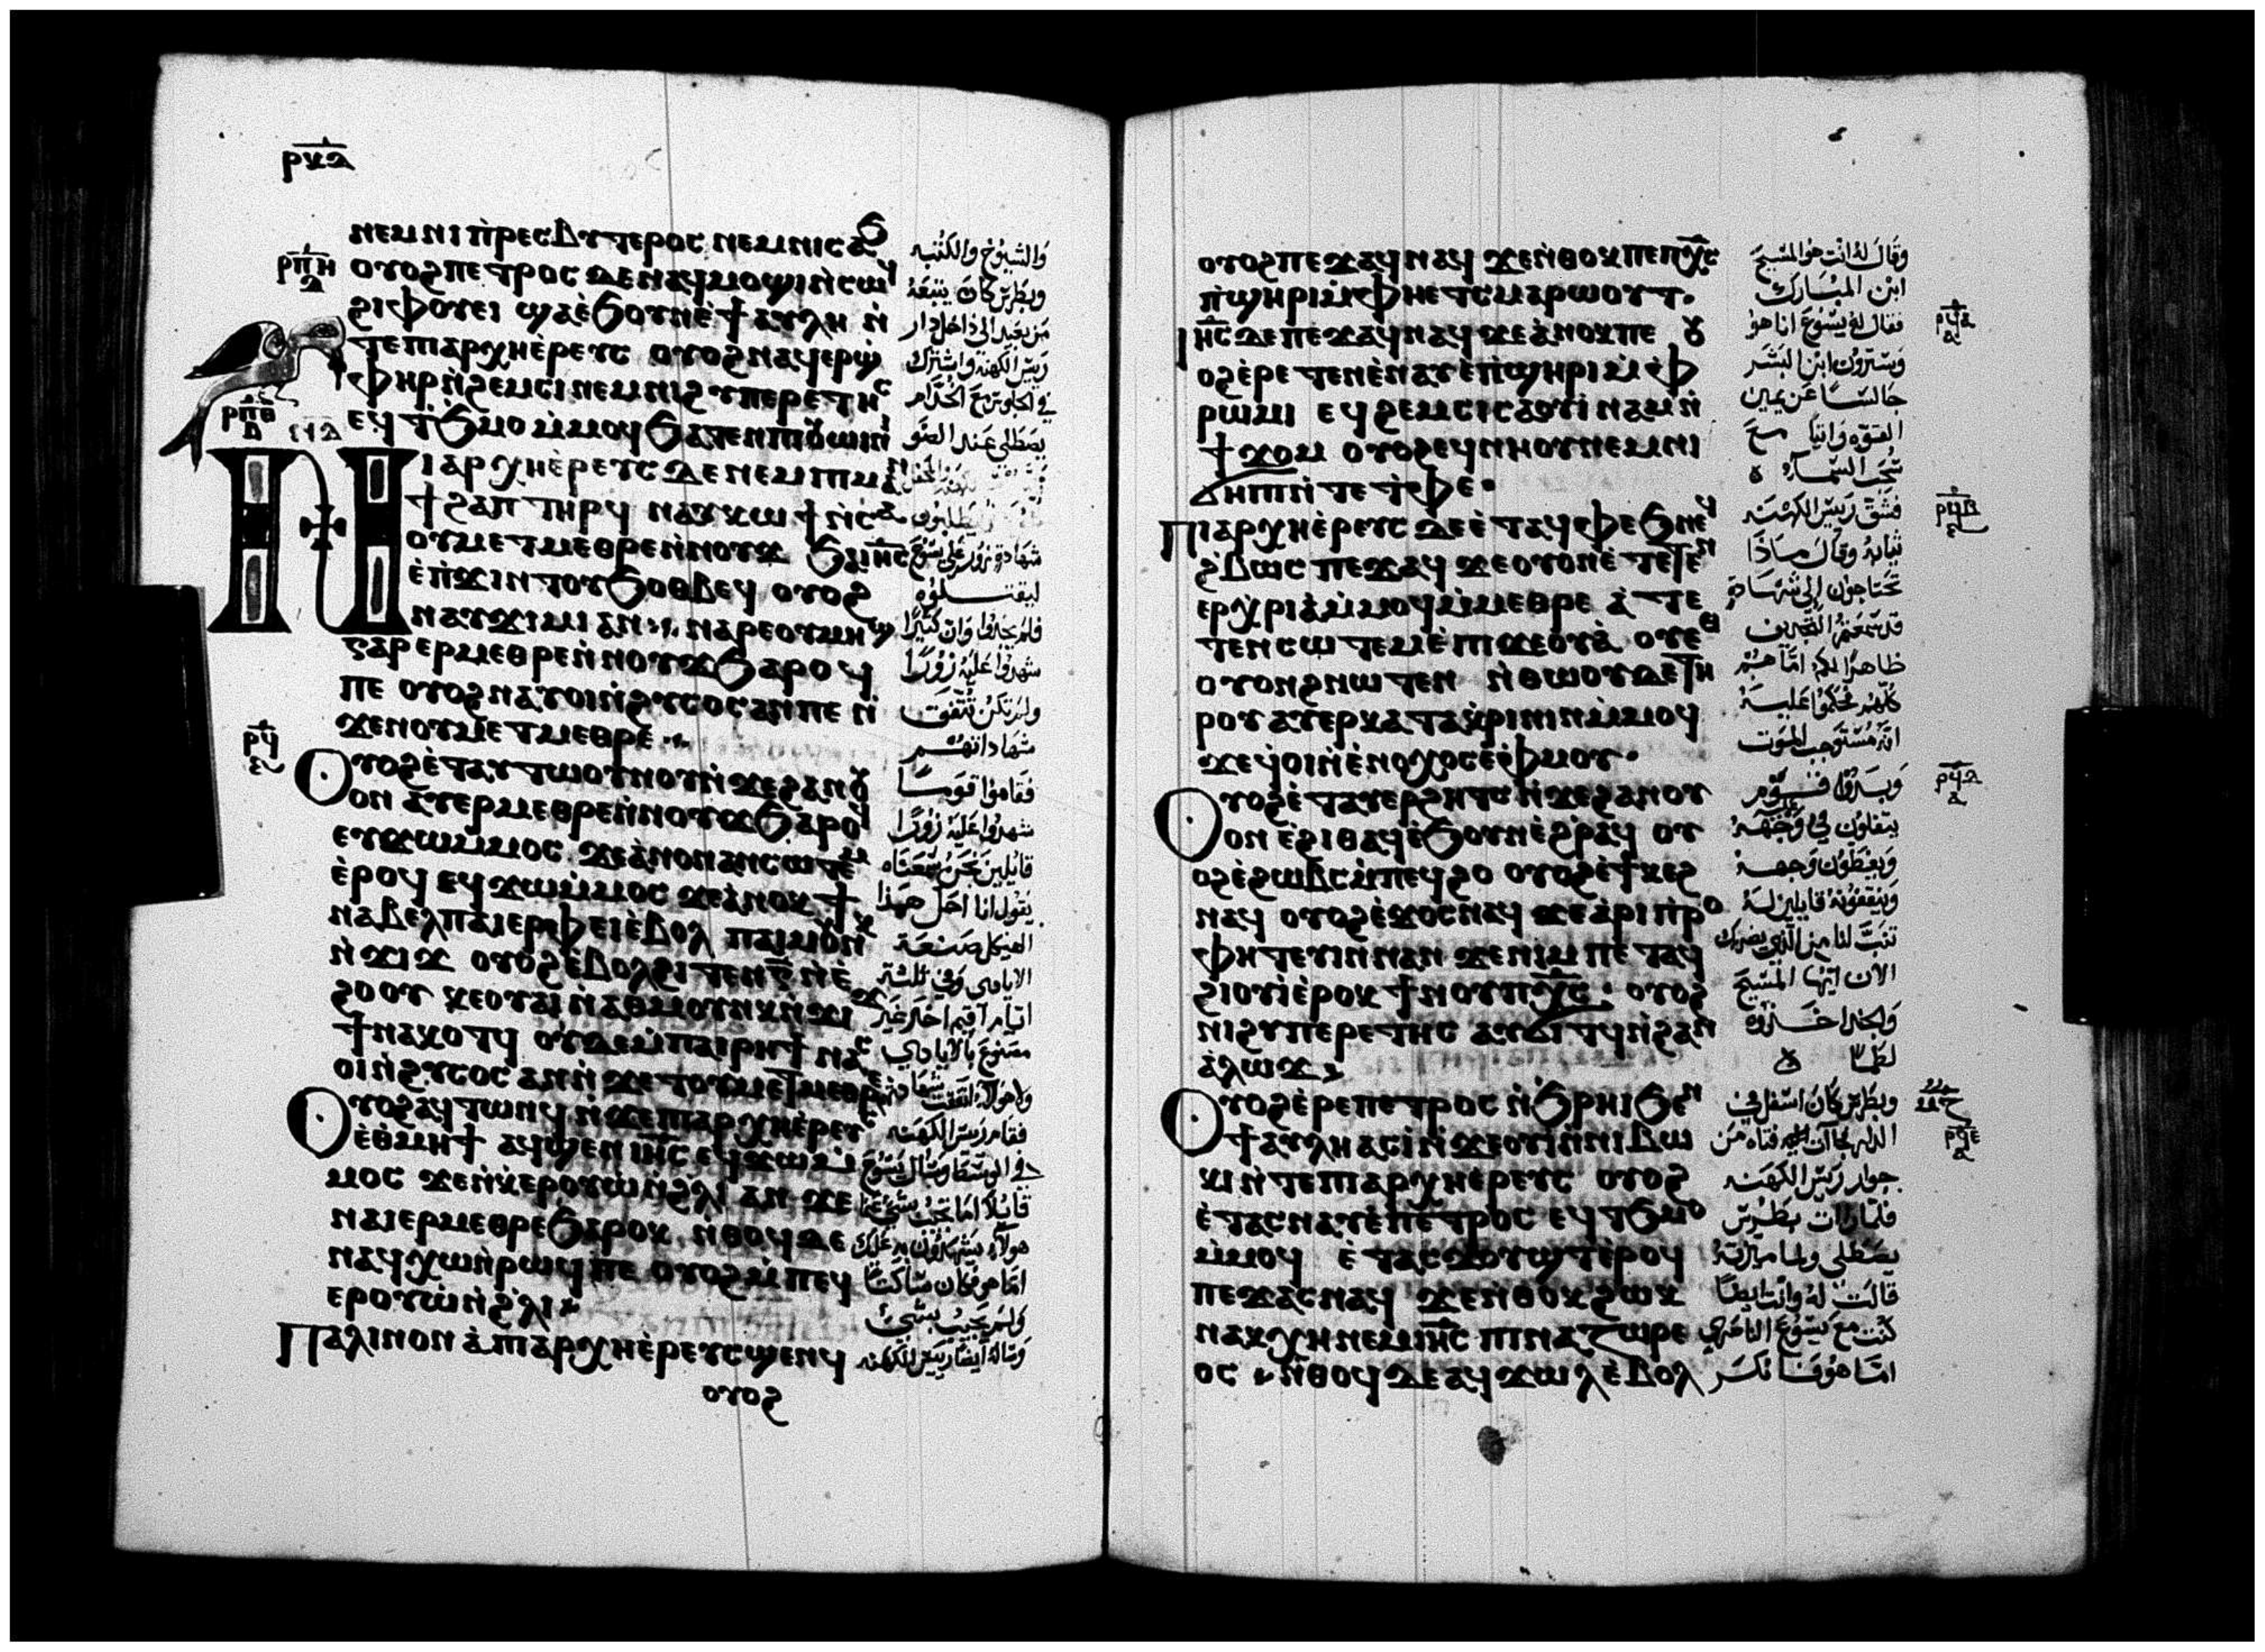 ⲣⲕⲇ
ⲛⲉⲙⲛⲓⲡ̀ⲣⲉⲥⲃⲩⲧⲉⲣⲟⲥ ⲛⲉⲙⲛⲓⲥⲁϧ
ⲟⲩⲟϩⲡⲉⲧⲣⲟⲥ ⲇⲉⲛⲁϥⲙⲟϣⲓⲛ̀ⲥⲱϥ
ϩⲓⲫⲟⲩⲉⲓ ϣⲁⲉ̀ϧⲟⲩⲛⲉ̀ϯⲁⲩⲗⲏ ⲛ̀
ⲧⲉⲡⲓⲁⲣⲭⲏⲉ̀ⲣⲉⲩⲥ ⲟⲩⲟϩⲛⲁϥⲉⲣϣ̀
ⲫⲏⲣⲛ̀ϩⲉⲙⲥⲓ ⲛⲉⲙⲛⲓϩⲩⲡⲉⲣⲉⲧⲏⲥ
ⲉϥⲧ̀ϧⲙⲟ ⲙ̀ⲙⲟϥ ϧⲁⲧⲉⲛⲡⲓⲟⲩⲱⲓⲛⲓ
ⲡⲓⲁⲣⲭⲏⲉ̀ⲣⲉⲩⲥ ⲇⲉ ⲛⲉⲙⲡⲓⲙⲁⲛ
ϯϩⲁⲡ ⲧⲏⲣϥ ⲛⲁⲩⲕⲱϯⲛ̀ⲥⲁ
ⲟⲩⲙⲉⲧⲙⲉⲑⲣⲉⲛ̀ⲛⲟⲩϫ ϧⲁⲓⲏⲥ
ⲉ̀ⲡ̀ϫⲓⲛⲧⲟⲩϧⲟⲑⲃⲉϥ ⲟⲩⲟϩ
ⲛⲁⲩϫⲓⲙⲓ ⲁⲛ ⲛⲁⲣⲉⲟⲩⲙⲏϣ
ⲅⲁⲣ ⲉⲣⲙⲉⲑⲣⲉⲛ̀ⲛⲟⲩϫ ϧⲁⲣⲟϥ
ⲡⲉ ⲟⲩⲟϩⲛⲁⲩⲟⲓⲛ̀ϩⲩⲥⲟⲥⲁⲛⲡⲉ ⲛ̀
ϫⲉⲛⲟⲩⲙⲉⲧⲙⲉⲑⲣⲉ
ⲟⲩⲟϩⲉ̀ⲧⲁⲩⲧⲱⲟⲩⲛⲟⲩⲛ̀ϫⲉϩⲁⲛⲟⲩ
ⲟⲛ ⲁⲩⲉⲣⲙⲉⲑⲣⲉⲛ̀ⲛⲟⲩϫ ϧⲁⲣⲟϥ
ⲉⲩϫⲱⲙ̀ⲙⲟⲥ ϫⲉⲁ̀ⲛⲟⲛⲁⲛⲥⲱⲧⲉⲙ
ⲉ̀ⲣⲟϥ ⲉϥϫⲱⲙ̀ⲙⲟⲥ ϫⲉⲁ̀ⲛⲟⲕ ϯ
ⲛⲁⲃⲉⲗⲡⲁⲓⲉⲣⲫⲉⲓⲉ̀ⲃⲟⲗ ⲡⲁⲓⲙⲟⲩⲛⲕ
ⲛ̀ϫⲓϫ ⲟⲩⲟϩⲉ̀ⲃⲟⲗϩⲓⲧⲉⲛⲅ̅ⲛ̀ⲉ̀
ϩⲟⲟⲩ ⲕⲉⲟⲩⲁⲓ ⲛ̀ⲁⲑⲙⲟⲩⲛⲕⲛ̀ϫⲓϫ
ϯⲛⲁⲕⲟⲧϥ ⲟⲩⲇⲉⲙ̀ⲡⲁⲓⲣⲏϯ ⲛⲁⲥ
ⲟⲓⲛ̀ϩⲩⲥⲟⲥ ⲁⲛⲛ̀ϫⲉⲧⲟⲩⲙⲉⲧⲙⲉⲑⲣⲉ
ⲟⲩⲟϩⲁϥⲧⲱⲛϥ ⲛ̀ϫⲉⲡⲓⲁⲣⲭⲏⲉ̀ⲣⲉⲩⲥ
ⲉ̀ⲑⲙⲏϯ ⲁϥϣⲉⲛ ⲓⲏⲥ ⲉϥϫⲱⲙ̀
ⲙⲟⲥ ϫⲉⲛ̀ⲕⲉⲣⲟⲩⲱ̀ⲛ̀ϩⲗⲓ ⲁⲛ ϫⲉ
ⲛⲁⲓⲉⲣⲙⲉⲑⲣⲉϧⲁⲣⲟⲕ ⲛⲑⲟϥⲇⲉ
ⲛⲁϥⲭⲱⲛ̀ⲣⲱϥ ⲡⲉ ⲟⲩⲟϩⲙ̀ⲡⲉϥ
ⲉⲣⲟⲩⲱ̀ⲛ̀ϩⲗⲓ
ⲡⲁⲗⲓⲛⲟⲛ ⲁ̀ⲡⲓⲁⲣⲭⲏⲉ̀ⲣⲉⲩⲥϣⲉⲛϥ
ⲟⲩⲟϩ
ⲣⲡⲏ
ⲣⲡⲑ
ⲣϥ
والشيوخ والكتبه
وبطرس كان يتبعه
من بعيد الى داخل دار
رييس الكهنه واشترك
في الجلوس مع الخدام
يصطلى عند الضو
شهادة زور على يسوع
ليقتلوه
فلم يجدوا وان كثيرًا
شهدوا عليه زورًا
ولم تكن تتفق
شهاداتهم
فقاموا قومًا
شهدوا عليه زورًا
قايلين نحن سمعناه
يقول انا احل هذا
الهيكل صنعة
الايادي وفي ثلثة
ايام اقيم اخر غير
مصنوع بالايادي
فقام رييس الكهنه
في الوسط وسال يسوع
قايلًا اما تجيب بشي عما
هولاى يشهدون به عليك
اما هو فكان ساكتًا
ولم يجيب بشي
وساله ايضًا رييس الكهنه
ⲟⲩⲟϩⲡⲉϫⲁϥⲛⲁϥ ϫⲉⲛ̀ⲑⲟⲕⲡⲉⲡⲭ̅ⲥ
ⲡ̀ϣⲏⲣⲓⲙ̀ⲫⲏⲉⲧⲥⲙⲁⲣⲱⲟⲩⲧ
ⲓⲏⲥ ⲇⲉⲡⲉϫⲁϥⲛⲁϥ ϫⲉⲁ̀ⲛⲟⲕⲡⲉ ⲟⲩ
ⲟϩⲉ̀ⲣⲉⲧⲉⲛⲉ̀ⲛⲁⲩⲉ̀ⲡ̀ϣⲏⲣⲓⲙ̀ⲫ̀
ⲣⲱⲙⲓ ⲉϥϩⲉⲙⲥⲓⲥⲁⲟⲩⲓ̀ⲛⲁⲙⲛ̀
ϯϫⲟⲙ ⲟⲩⲟϩⲉϥⲛⲏⲟⲩⲛⲉⲙⲛⲓ
ϭⲏⲡⲓⲛ̀ⲧⲉⲧ̀ⲫⲉ
ⲡⲓⲁⲣⲭⲏⲉ̀ⲣⲉⲩⲥ ⲇⲉⲉ̀ⲧⲁϥⲫⲉϧⲛⲉϥ
ϩⲃⲱⲥ ⲡⲉϫⲁϥ ϫⲉⲟⲩⲟⲛⲉ̀ⲧⲉⲧⲉⲛ
ⲉⲣⲭ̀ⲣⲓⲁⲙ̀ⲙⲟϥⲙ̀ⲙⲉⲑⲣⲉ ⲁ̀ⲧⲉ
ⲧⲉⲛⲥⲱⲧⲉⲙⲉ̀ⲡⲓϫⲉⲟⲩⲁ̀ ⲟⲩⲉⲑ
ⲟⲩⲟⲛϩⲛⲱⲧⲉⲛ ⲛ̀ⲑⲱⲟⲩⲇⲉⲧⲏ
ⲣⲟⲩ ⲁⲩⲉⲣⲕⲁⲧⲁⲕ̀ⲣⲓⲛⲓⲛⲙ̀ⲙⲟϥ
ϫⲉϥ̀ⲟⲓⲛ̀ⲉ̀ⲛⲟⲭⲟⲥⲉ̀ⲫ̀ⲙⲟⲩ
ⲟⲩⲟϩⲉ̀ⲧⲁⲩⲉⲣϩⲏⲧⲥ ⲛ̀ϫⲉϩⲁⲛⲟⲩ
ⲟⲛ ⲉ̀ϩⲓⲑⲁϥⲉ̀ϧⲟⲩⲛⲉ̀ϩ̀ⲣⲁϥ ⲟⲩ
ⲟϩⲉ̀ϩⲱⲃⲥⲙ̀ⲡⲉϥϩⲟ ⲟⲩⲟϩⲉ̀ϯⲕⲉϩ
ⲛⲁϥ ⲟⲩⲟϩⲉ̀ϫⲟⲥⲛⲁϥ ϫⲉⲁ̀ⲣⲓⲡ̀ⲣⲟ
ⲫⲏⲧⲉⲩⲓⲛⲛⲁⲛ ϫⲉⲛⲓⲙ ⲡⲉⲧⲁϥ
ϩⲓⲟⲩⲓ̀ⲉ̀ⲣⲟⲕ ϯⲛⲟⲩⲡⲭ̅ⲥ ⲟⲩⲟϩ
ⲛⲓϩⲩⲡⲉⲣⲉⲧⲏⲥ ⲁⲩϭⲓⲧϥⲛ̀ϩⲁⲛ
ⲁ̀ⲗⲱϫ
ⲟⲩⲟϩⲉ̀ⲣⲉⲡⲉⲧⲣⲟⲥ ⲛ̀ϧⲣⲏⲓϧⲉⲛ
ϯⲁⲩⲗⲏⲁⲥⲓ̀ⲛ̀ϫⲉⲟⲩⲓ̀ⲛ̀ⲛⲓⲃⲱ
ⲕⲓⲛ̀ⲧⲉⲡⲓⲁⲣⲭⲏⲉ̀ⲣⲉⲩⲥ ⲟⲩⲟϩ
ⲉ̀ⲧⲁⲥⲛⲁⲩⲉ̀ⲡⲉⲧⲣⲟⲥ ⲉϥⲧ̀ϧⲙⲟ
ⲙ̀ⲙⲟϥ ⲉ̀ⲧⲁⲥϫⲟⲩϣⲧⲉ̀ⲣⲟϥ
ⲡⲉϫⲁⲥⲛⲁϥ ϫⲉⲛ̀ⲑⲟⲕϩⲱⲕ
ⲛⲁⲕⲭⲏⲛⲉⲙⲓⲏⲥ ⲡⲓⲛⲁⲍⲱⲣⲉ
ⲟⲥ ⲛ̀ⲑⲟϥⲇⲉⲁϥϫⲱⲗⲉ̀ⲃⲟⲗ
وقال له انت هو المسيح
ابن المبارك
فقال له يسوع انا هو
وسترون ابن البشر
جالسًا عن يمين
القوه واتيًا مع
سحب السماء
فشق رييس الكهنه
ثيابه وقال ماذا
تحتاجون الى شهادة
قد سمعتم التجديف
ظاهرًا لكم اما هم
كلهم فحكموا عليه
انه مستوجب الموت
وبدوا قوم
يتفلون في وجهه
ويغطون وجهه
قايلين له
تنبَّ لنا من الذي يضربك
الان ايها المسيح
وبطرس كان اسفل في
جوار رييس الكهنه
فلما رات بطرس
يصطلى
قالت له وانت ايضًا
كنت مع يسوع الناصري
اما هو فانكر
ⲣϥⲁ
ⲣϥⲃ
ⲣϥⲇ
ⲣϥⲉ